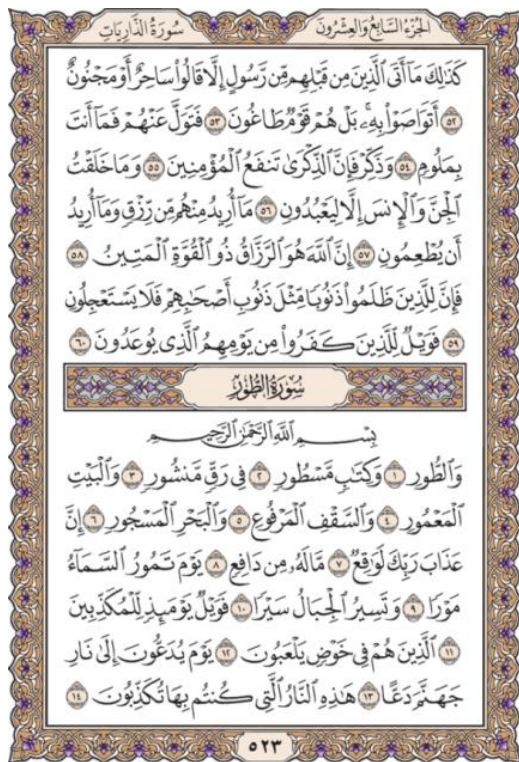 الجُزْءُ السَّابِعُ وَالْعِشْرُونَ سُورَةُ الذَّارِيَاتِ
كَذَٰلِكَ مَآ أَتَى ٱلَّذِينَ مِن قَبْلِهِم مِّن رَّسُولٍ إِلَّا قَالُوا۟ سَاحِرٌ أَوْ مَجْنُونٌ
٥٢ أَتَوَاصَوْا۟ بِهِۦ ۚ بَلْ هُمْ قَوْمٌ طَاغُونَ ٥٣ فَتَوَلَّ عَنْهُمْ فَمَآ أَنتَ
بِمَلُومٍ ٥٤ وَذَكِّرْ فَإِنَّ ٱلذِّكْرَىٰ تَنفَعُ ٱلْمُؤْمِنِينَ ٥٥ وَمَا خَلَقْتُ
ٱلْجِنَّ وَٱلْإِنسَ إِلَّا لِيَعْبُدُونِ ٥٦ مَآ أُرِيدُ مِنْهُم مِّن رِّزْقٍ وَمَآ أُرِيدُ
أَن يُطْعِمُونِ ٥٧ إِنَّ ٱللَّهَ هُوَ ٱلرَّزَّاقُ ذُو ٱلْقُوَّةِ ٱلْمَتِينُ ٥٨
فَإِنَّ لِلَّذِينَ ظَلَمُوا۟ ذَنُوبًا مِّثْلَ ذَنُوبِ أَصْحَٰبِهِمْ فَلَا يَسْتَعْجِلُونِ
٥٩ فَوَيْلٌ لِّلَّذِينَ كَفَرُوا۟ مِن يَوْمِهِمُ ٱلَّذِى يُوعَدُونَ ٦٠
سُورَةُ الطُّورِ
بِسْمِ ٱللَّهِ ٱلرَّحْمَٰنِ ٱلرَّحِيمِ
وَٱلطُّورِ ١ وَكِتَٰبٍ مَّسْطُورٍ ٢ فِى رَقٍّ مَّنشُورٍ ٣ وَٱلْبَيْتِ
ٱلْمَعْمُورِ ٤ وَٱلسَّقْفِ ٱلْمَرْفُوعِ ٥ وَٱلْبَحْرِ ٱلْمَسْجُورِ ٦ إِنَّ
عَذَابَ رَبِّكَ لَوَٰقِعٌ ٧ مَّا لَهُۥ مِن دَافِعٍ ٨ يَوْمَ تَمُورُ ٱلسَّمَآءُ
مَوْرًا ٩ وَتَسِيرُ ٱلْجِبَالُ سَيْرًا ١٠ فَوَيْلٌ يَوْمَئِذٍ لِّلْمُكَذِّبِينَ
١١ ٱلَّذِينَ هُمْ فِى خَوْضٍ يَلْعَبُونَ ١٢ يَوْمَ يُدَعُّونَ إِلَىٰ نَارِ
جَهَنَّمَ دَعًّا ١٣ هَٰذِهِ ٱلنَّارُ ٱلَّتِى كُنتُم بِهَا تُكَذِّبُونَ ١٤
٥٢٣